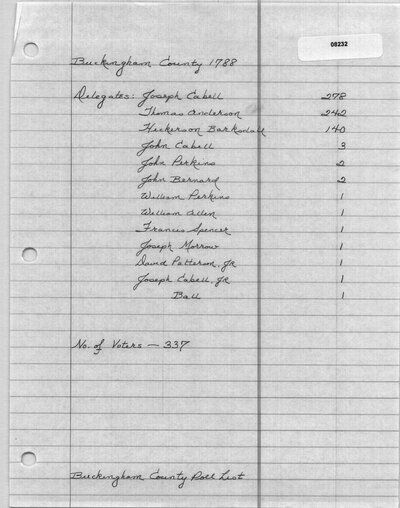 08232
Buckingham County 1788
Delegates: Joseph Cabell 278
Thomas Anderson 242
Hickerson Barksdale 140
John Cabell 3
John Perkins 2
John Bernard 2
William Perkins 1
William Allen 1
Francis Spencer 1
Joseph Morrow 1
David Patteson, Jr 1
Joseph Cabell, Jr 1
Ball 1
No. of Voters — 337
Buckingham County Poll List